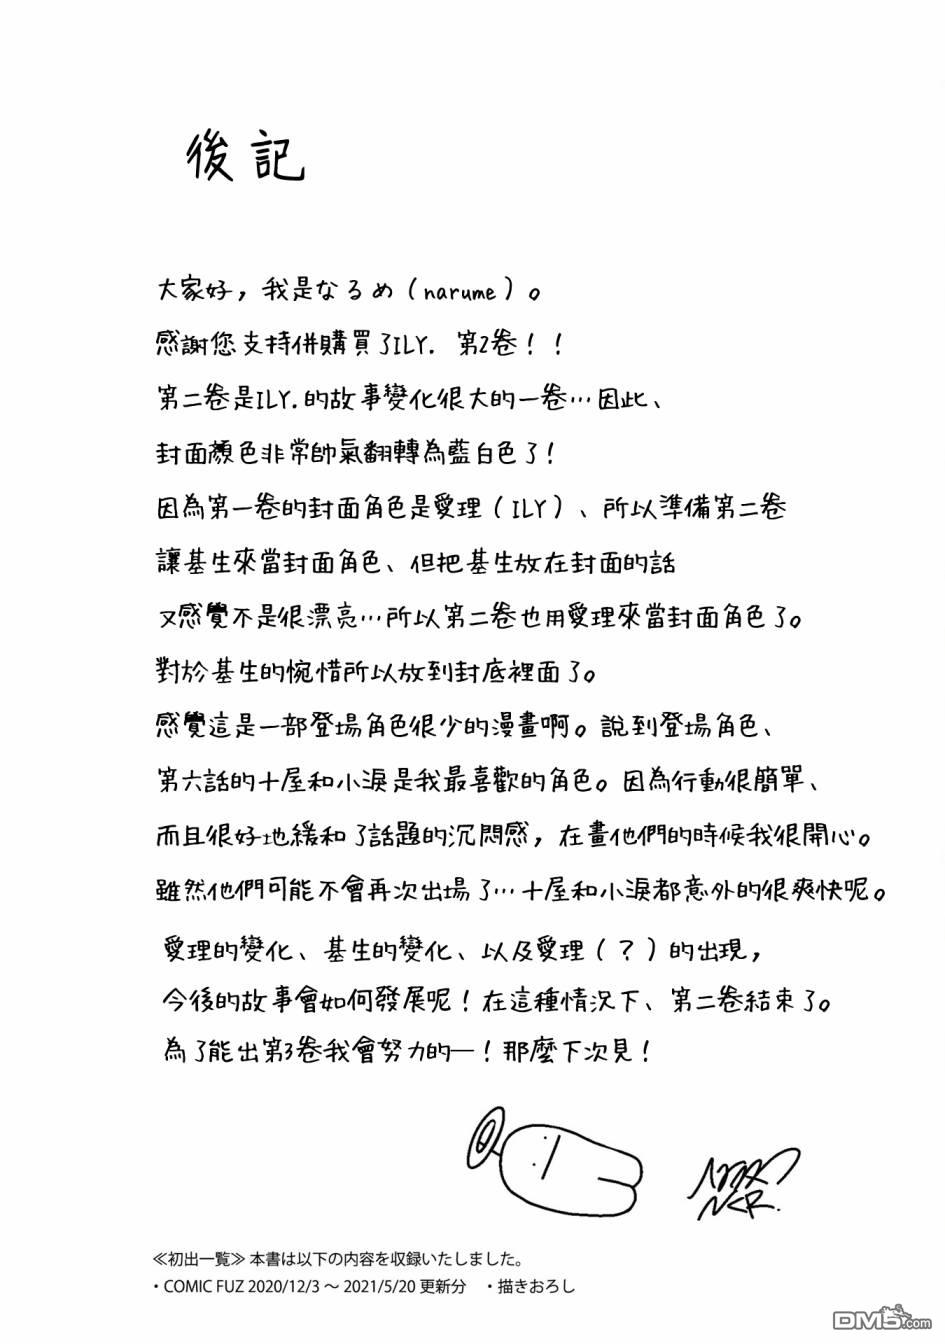 後記
大家好，我是なるめ（narume）。
感謝您支持併購買了ILY. 第2卷！！
第二卷是ILY.的故事變化很大的一卷…因此、
封面顏色非常帥氣翻轉為藍白色了！
因為第一卷的封面角色是愛理（ILY）、所以準備第二卷
讓基生來當封面角色、但把基生放在封面的話
又感覺不是很漂亮…所以第二卷也用愛理來當封面角色了。
對於基生的惋惜所以放到封底裡面了。
感覺這是一部登場角色很少的漫畫啊。說到登場角色、
第六話的十屋和小淚是我最喜歡的角色。因為行動很簡單、
而且很好地緩和了話題的沉悶感，在畫他們的時候我很開心。
雖然他們可能不會再次出場了…十屋和小淚都意外的很爽快呢。
愛理的變化、基生的變化、以及愛理（？）的出現，
今後的故事會如何發展呢！在這種情況下、第二卷結束了。
為了能出第3卷我會努力的—！那麼下次見！
≪初出一覧≫本書は以下の内容を収録いたしました。
・COMIC FUZ 2020/12/3 〜 2021/5/20 更新分 ・描きおろし
DM5.com